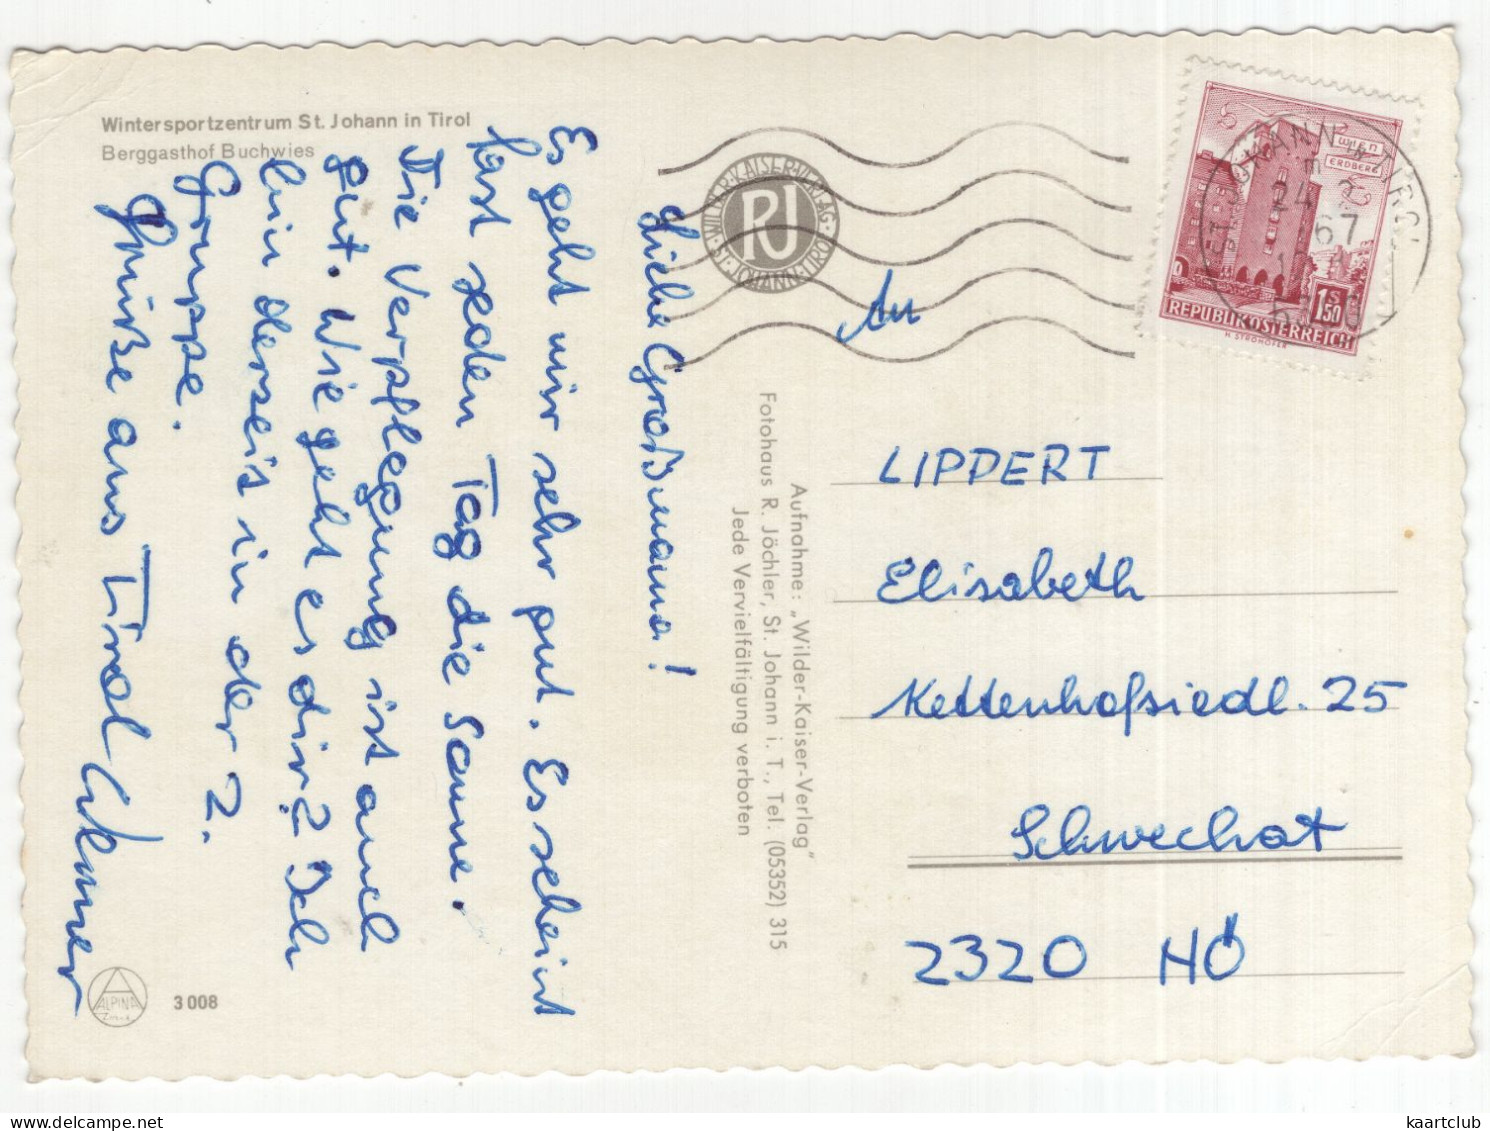 Wintersportzentrum St. Johann in Tirol
Berggasthof Buchwies
Liebe Großmama!
Es geht mir sehr gut. Es scheint
fast jeden Tag die Sonne.
Die Verpflegung ist auch
gut. Wie geht es dir? Ich
bin derzeit in der 2.
Gruppe.
Grüße aus Tirol
3 008
ALPINA
WILDER-KAISER-VERLAG
RJ
ST. JOHANN-TIROL
Aufnahme: „Wilder-Kaiser-Verlag"
Fotohaus R. Jöchler, St. Johann i. T., Tel. (05352) 315
Jede Vervielfältigung verboten
WIEN
ERDBERG
1.50
S
REPUBLIK ÖSTERREICH
H. STROHOFER
24
67
An
LIPPERT
Elisabeth
Kettenhofsiedl. 25
Schwechat
2320 NÖ
kaartclub